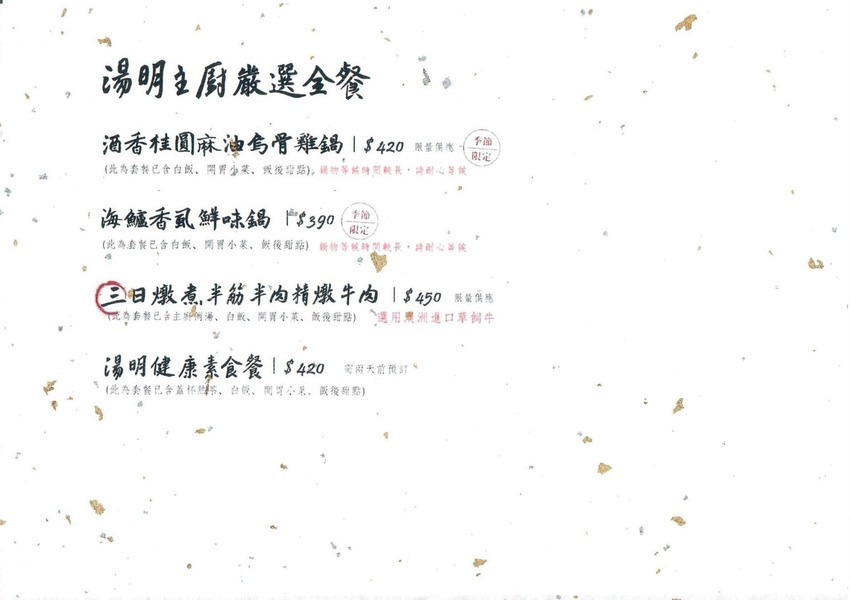 湯明主厨嚴選全餐
酒香桂圓麻油烏骨雞鍋 | $420 限量供應 季節限定
(此為套餐已含白飯、開胃小菜、飯後甜點)。鍋物等候時間較長，請耐心等候
海鱸香虱鮮味鍋 | $390 季節限定
(此為套餐已含白飯、開胃小菜、飯後甜點) 鍋物等候時間較長，請耐心等候
三日燉煮半筋半肉精燉牛肉 | $450 限量供應
(此為套餐已含主廚例湯、白飯、開胃小菜、飯後甜點) 選用澳洲進口草飼牛
湯明健康素食餐 | $420 需兩天前預訂
(此為套餐已含蓋杯熱茶、白飯、開胃小菜、飯後甜點)